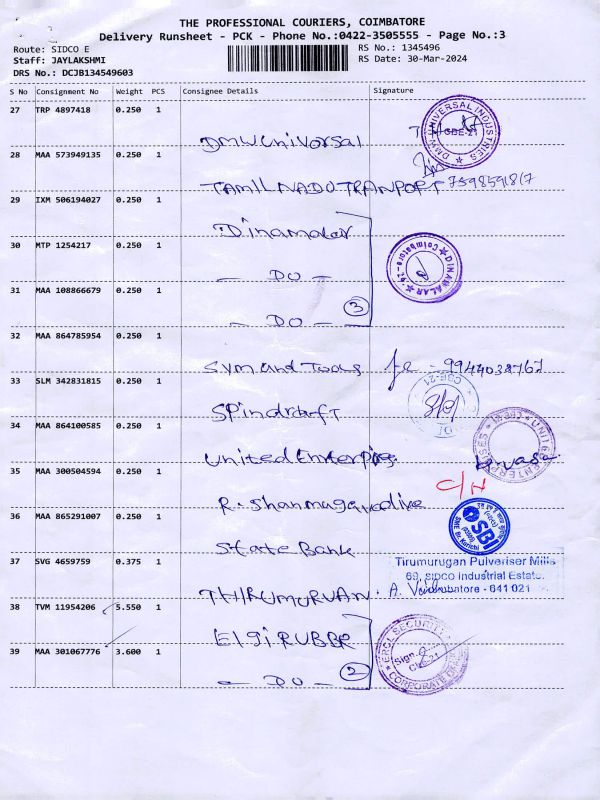 THE PROFESSIONAL COURIERS, COIMBATORE
Delivery Runsheet - PCK - Phone No.:0422-3505555 - Page No.:3
Route: SIDCO E
RS No.: 1345496
Staff: JAYLAKSHMI
RS Date: 30-Mar-2024
DRS No.: DCJB134549603
S No Consignment No Weight PCS Consignee Details Signature
27 TRP 4897418 0.250 1
DMW Universal
DMW-UNIVERSAL INDUSTRIES CBE-21
28 MAA 573949135 0.250 1
TAMIL NADU TRANPORT 7598591817
29 IXM 506194027 0.250 1
Dinamalar
30 MTP 1254217 0.250 1
- DO -
DINAMALAR Coimbatore-
31 MAA 108866679 0.250 1
- DO - 3
32 MAA 864785954 0.250 1
Sym and Tools 9944032767
33 SLM 342831815 0.250 1
Spindraft
CBE-21
34 MAA 864100585 0.250 1
United Enterprise
UNITED ENTERPRISES
35 MAA 300504594 0.250 1
R. Shanmugavadive
C/H
36 MAA 865291007 0.250 1
State Bank
SBI
37 SVG 4659759 0.375 1
THIRUMURUAN
Tirumurugan Pulveriser Mills
69, SIDCO Industrial Estate.
Coimbatore - 641 021
38 TVM 11954206 5.550 1
Elgi RUBBR
39 MAA 301067776 3.600 1
- DO - 2
SECURITY Sign. CBE-21 CORPORATE